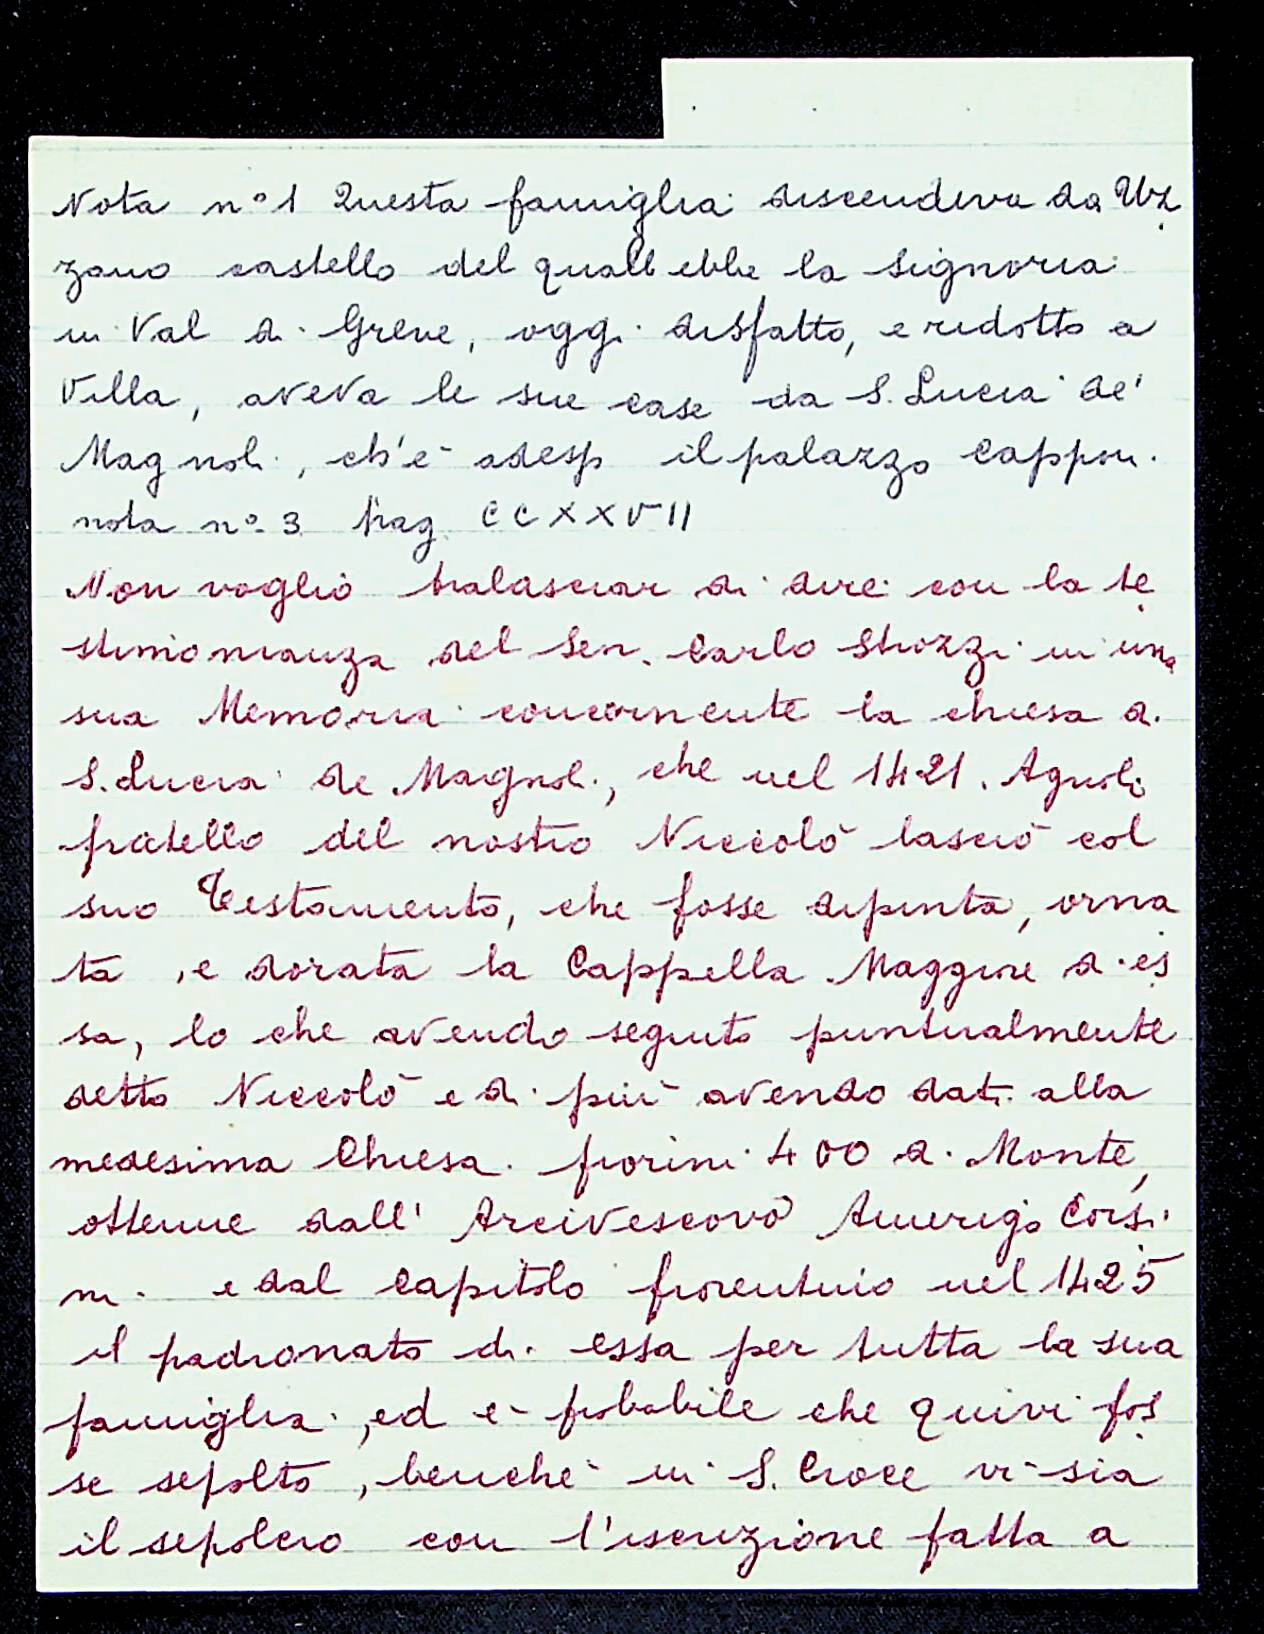 Nota n° 1 Questa famiglia discendeva da Uz
zano castello del quale ebbe la signoria
in Val di Greve, oggi disfatto, e ridotto a
Villa, aveva le sue case da S. Lucia de'
Magnoli, ch'è adesso il palazzo Capponi.
nota n° 3 pag. CCXXVII
Non voglio tralasciar di dire con la te
stimonianza del Sen. Carlo Strozzi in una
sua Memoria concernente la chiesa di
S. Lucia de Magnoli, che nel 1421. Agnolo
fratello del nostro Niccolò lasciò col
suo Testamento, che fosse dipinta, orna
ta, e dorata la Cappella Maggiore di es
sa, lo che avendo seguito puntualmente
detto Niccolò e di più avendo dati alla
medesima Chiesa fiorini 400 di Monte,
ottenne dall' Arcivescovo Amerigo Corsi
ni e dal Capitolo fiorentino nel 1425
il padronato di essa per tutta la sua
famiglia, ed è probabile che quivi fos
se sepolto, benchè in S. Croce vi sia
il sepolcro con l'iscrizione fatta a